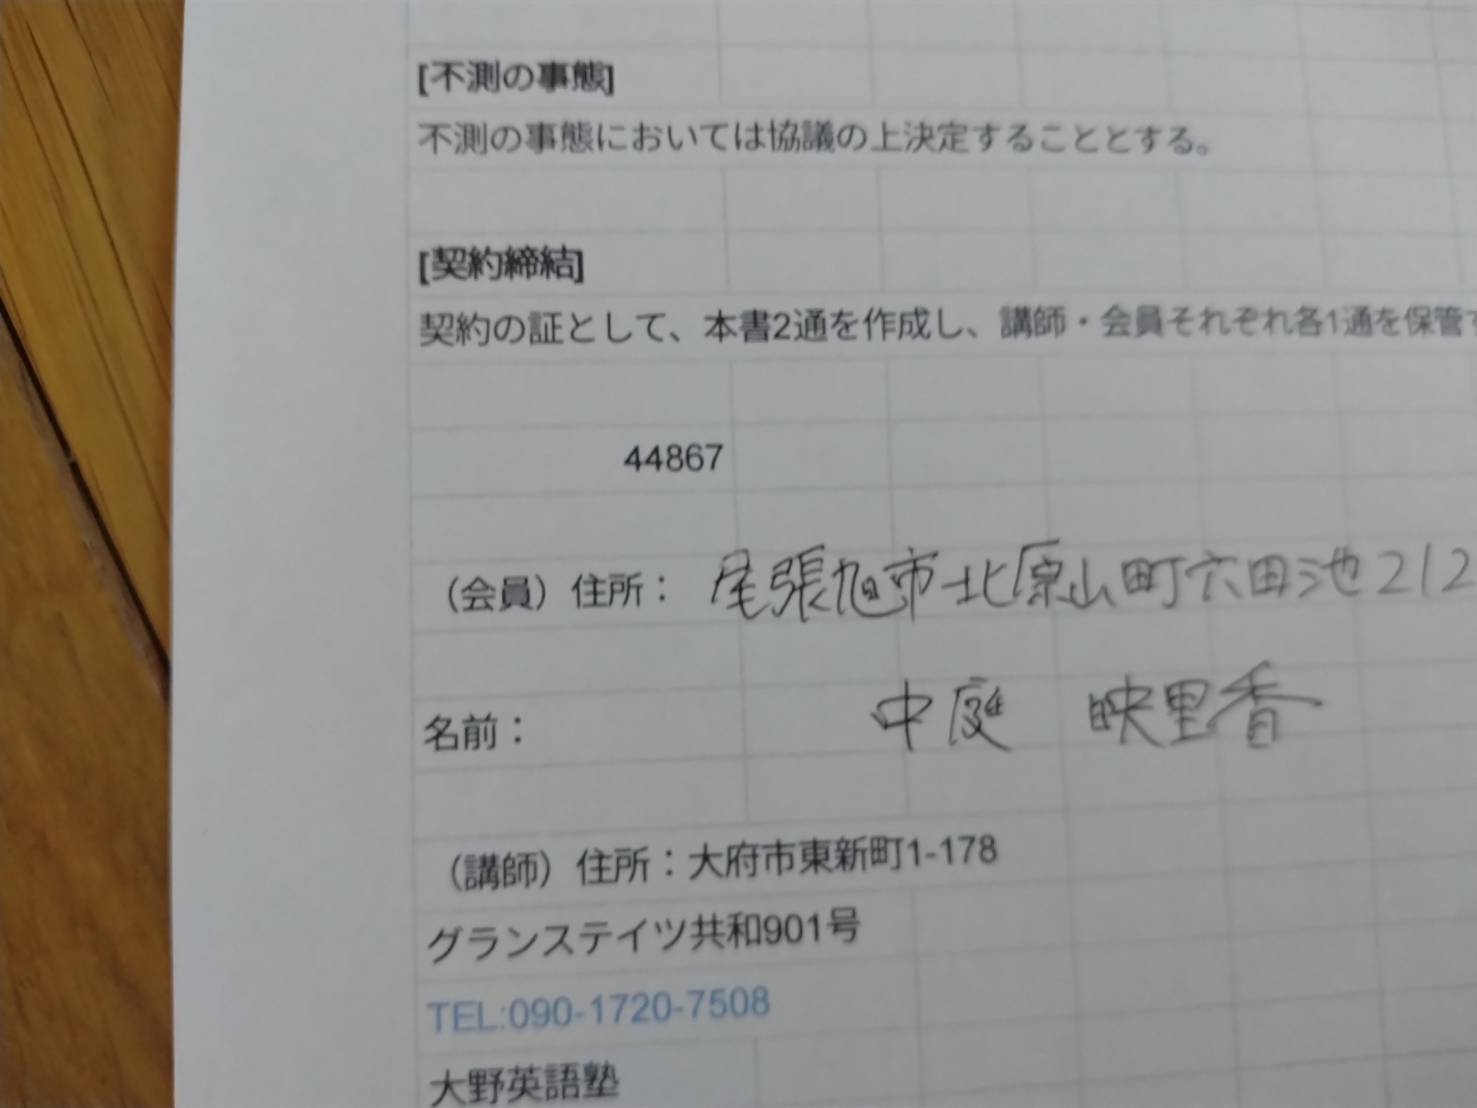 [不測の事態]
不測の事態においては協議の上決定することとする。
[契約締結]
契約の証として、本書2通を作成し、講師・会員それぞれ各1通を保管す
44867
（会員）住所： 尾張旭市北原山町六田池212
名前： 中庭 映里香
（講師）住所：大府市東新町1-178
グランステイツ共和901号
TEL:090-1720-7508
大野英語塾